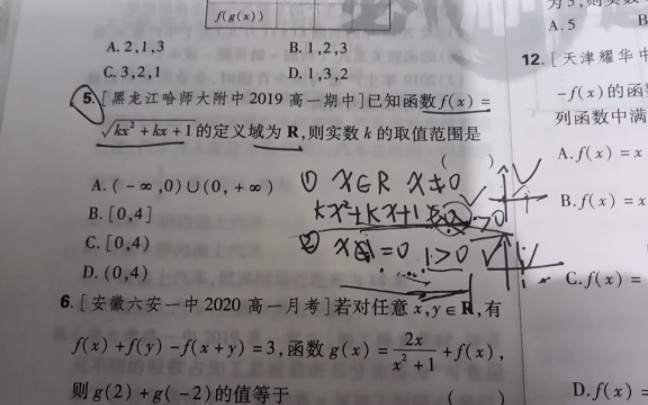 f(g(x))
A. 2,1,3 B. 1,2,3
C. 3,2,1 D. 1,3,2
5. [黑龙江哈师大附中 2019 高一期中]已知函数 f(x) =
√(kx² + kx + 1) 的定义域为 R,则实数 k 的取值范围是
( )
A. (-∞,0)∪(0,+∞)
B. [0,4]
C. [0,4)
D. (0,4)
① x∈R x≠0
kx²+kx+1 >0
② x =0 1>0
6. [安徽六安一中 2020 高一月考]若对任意 x,y∈R,有
f(x)+f(y)-f(x+y)=3,函数 g(x) = 2x/(x²+1) + f(x),
则 g(2)+g(-2)的值等于 ( )
A. 5 B
12. [天津耀华中
-f(x)的函
列函数中满
A. f(x) = x
B. f(x) = x
C. f(x) =
D. f(x) =